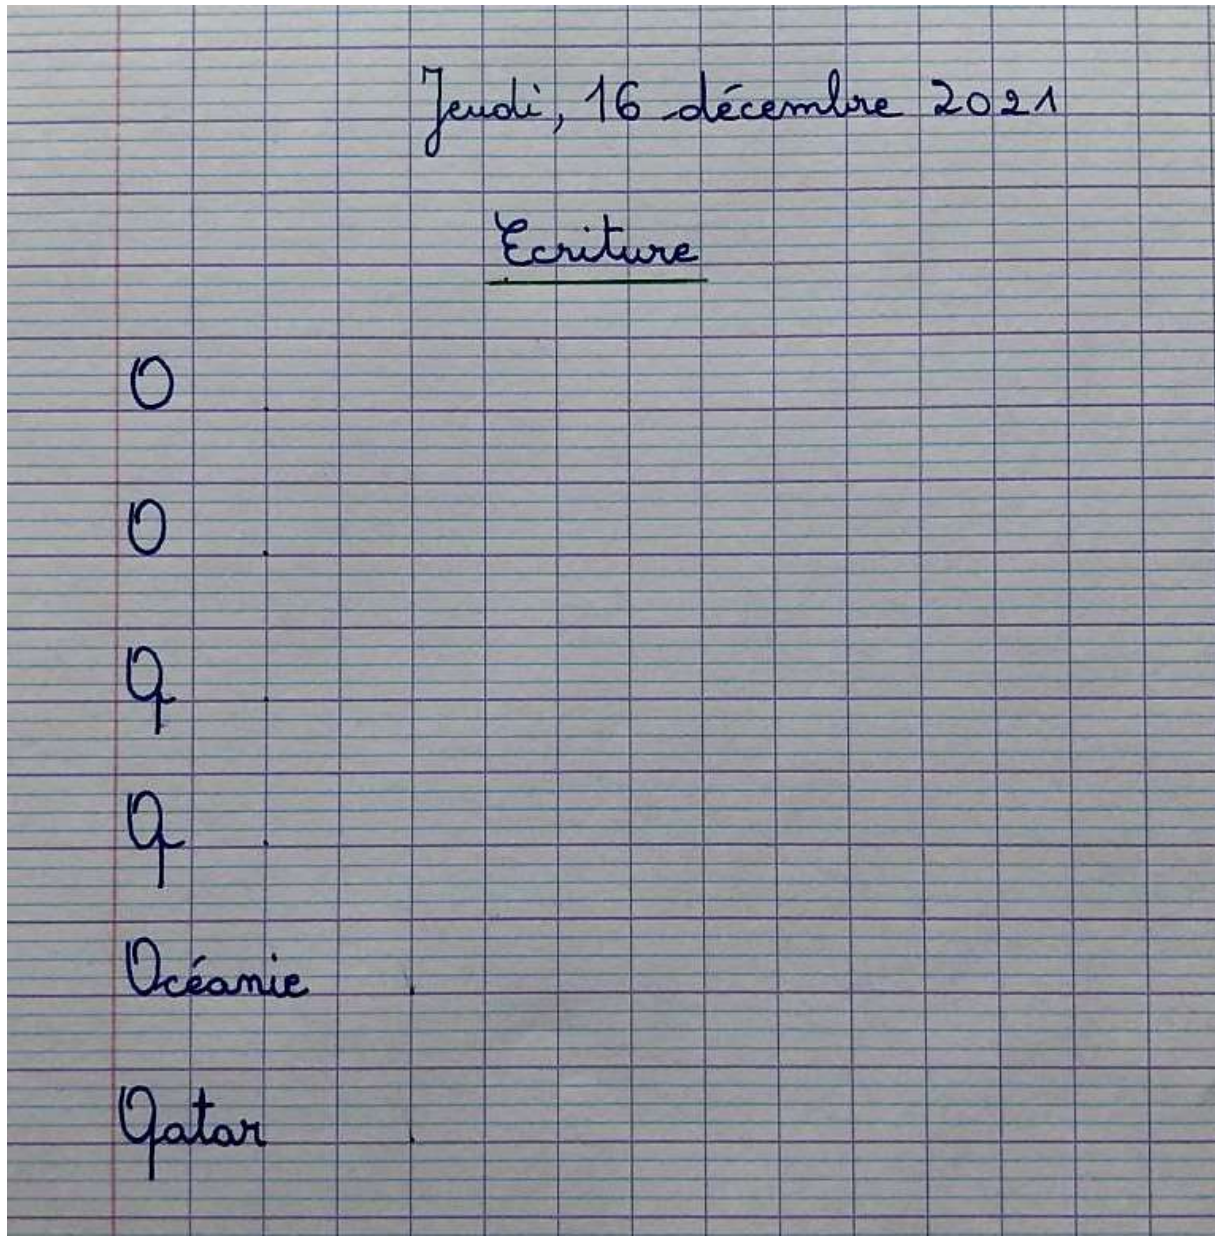 Jeudi, 16 décembre 2021
Ecriture
O .
O .
Q .
Q .
Océanie .
Qatar .